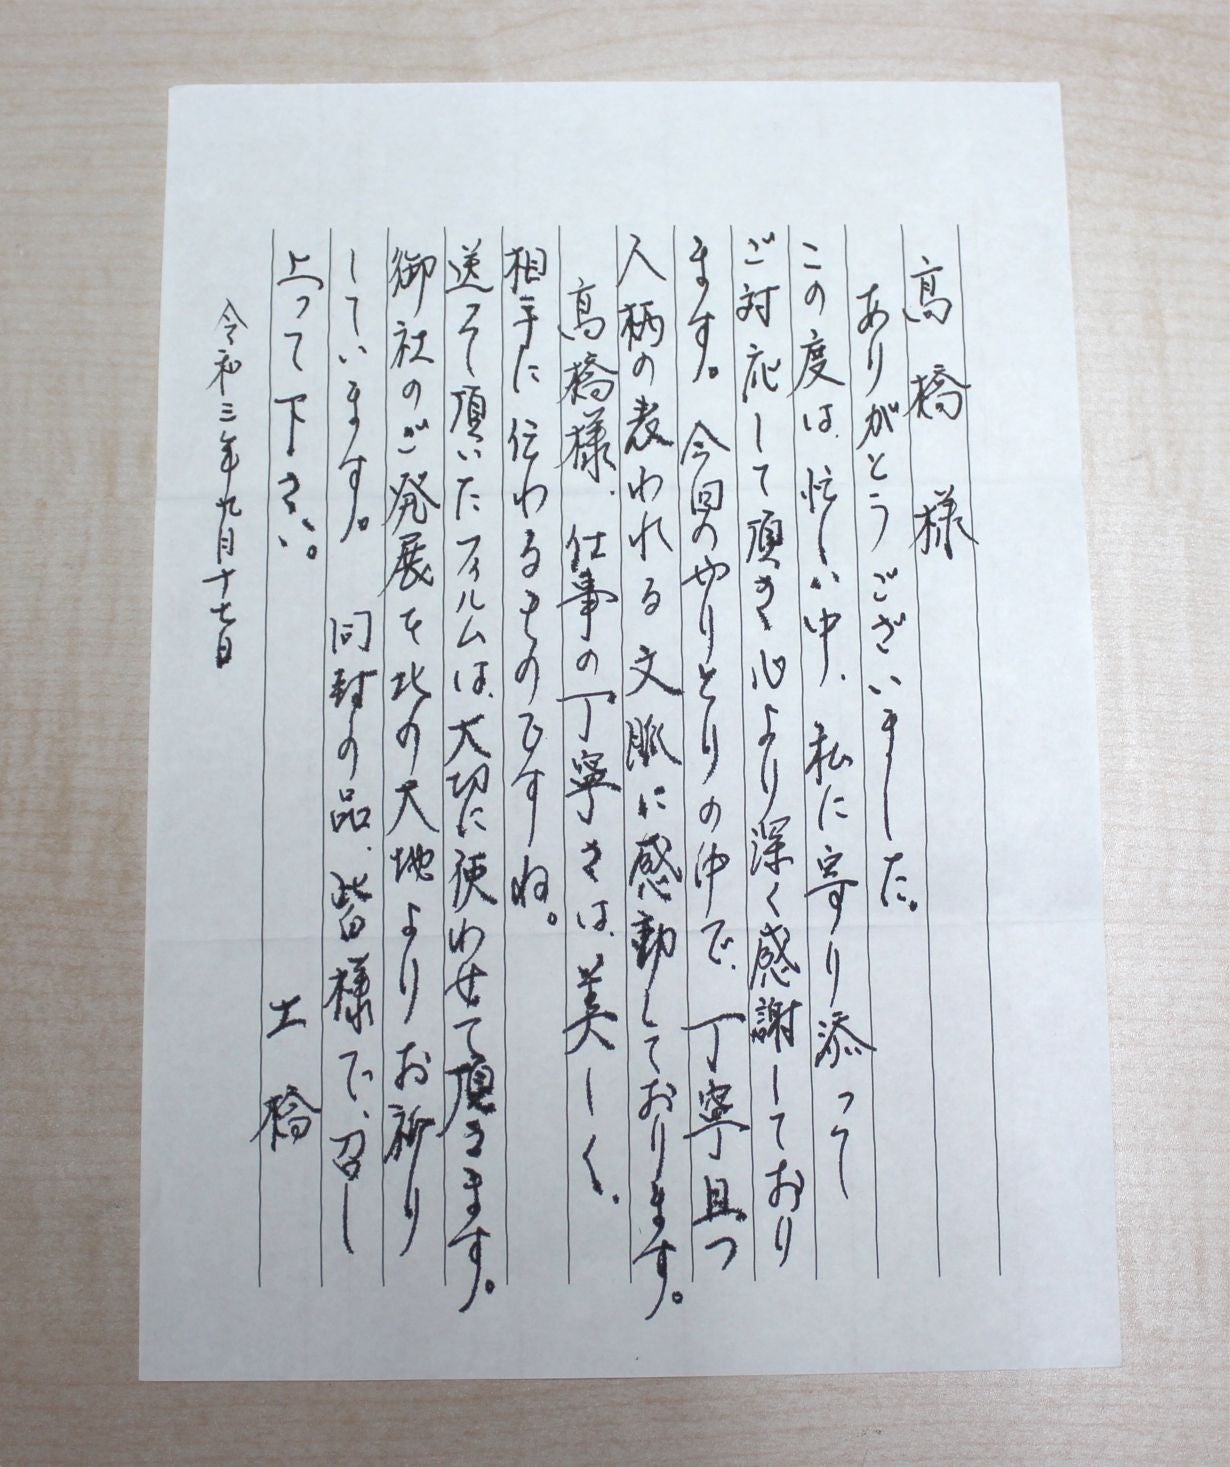 高橋様
ありがとうございました。
この度は、忙しい中、私に寄り添って
ご対応して頂き心より深く感謝しており
ます。今回のやりとりの中で、丁寧且つ
人柄の表われる文脈に感動しております。
高橋様、仕事の丁寧さは、美しく、
相手に伝わるものですね。
送って頂いたフィルムは、大切に使わせて頂きます。
御社のご発展を北の大地よりお祈り
しています。同封の品、皆様で、召し
上って下さい。 土橋
令和三年九月十七日